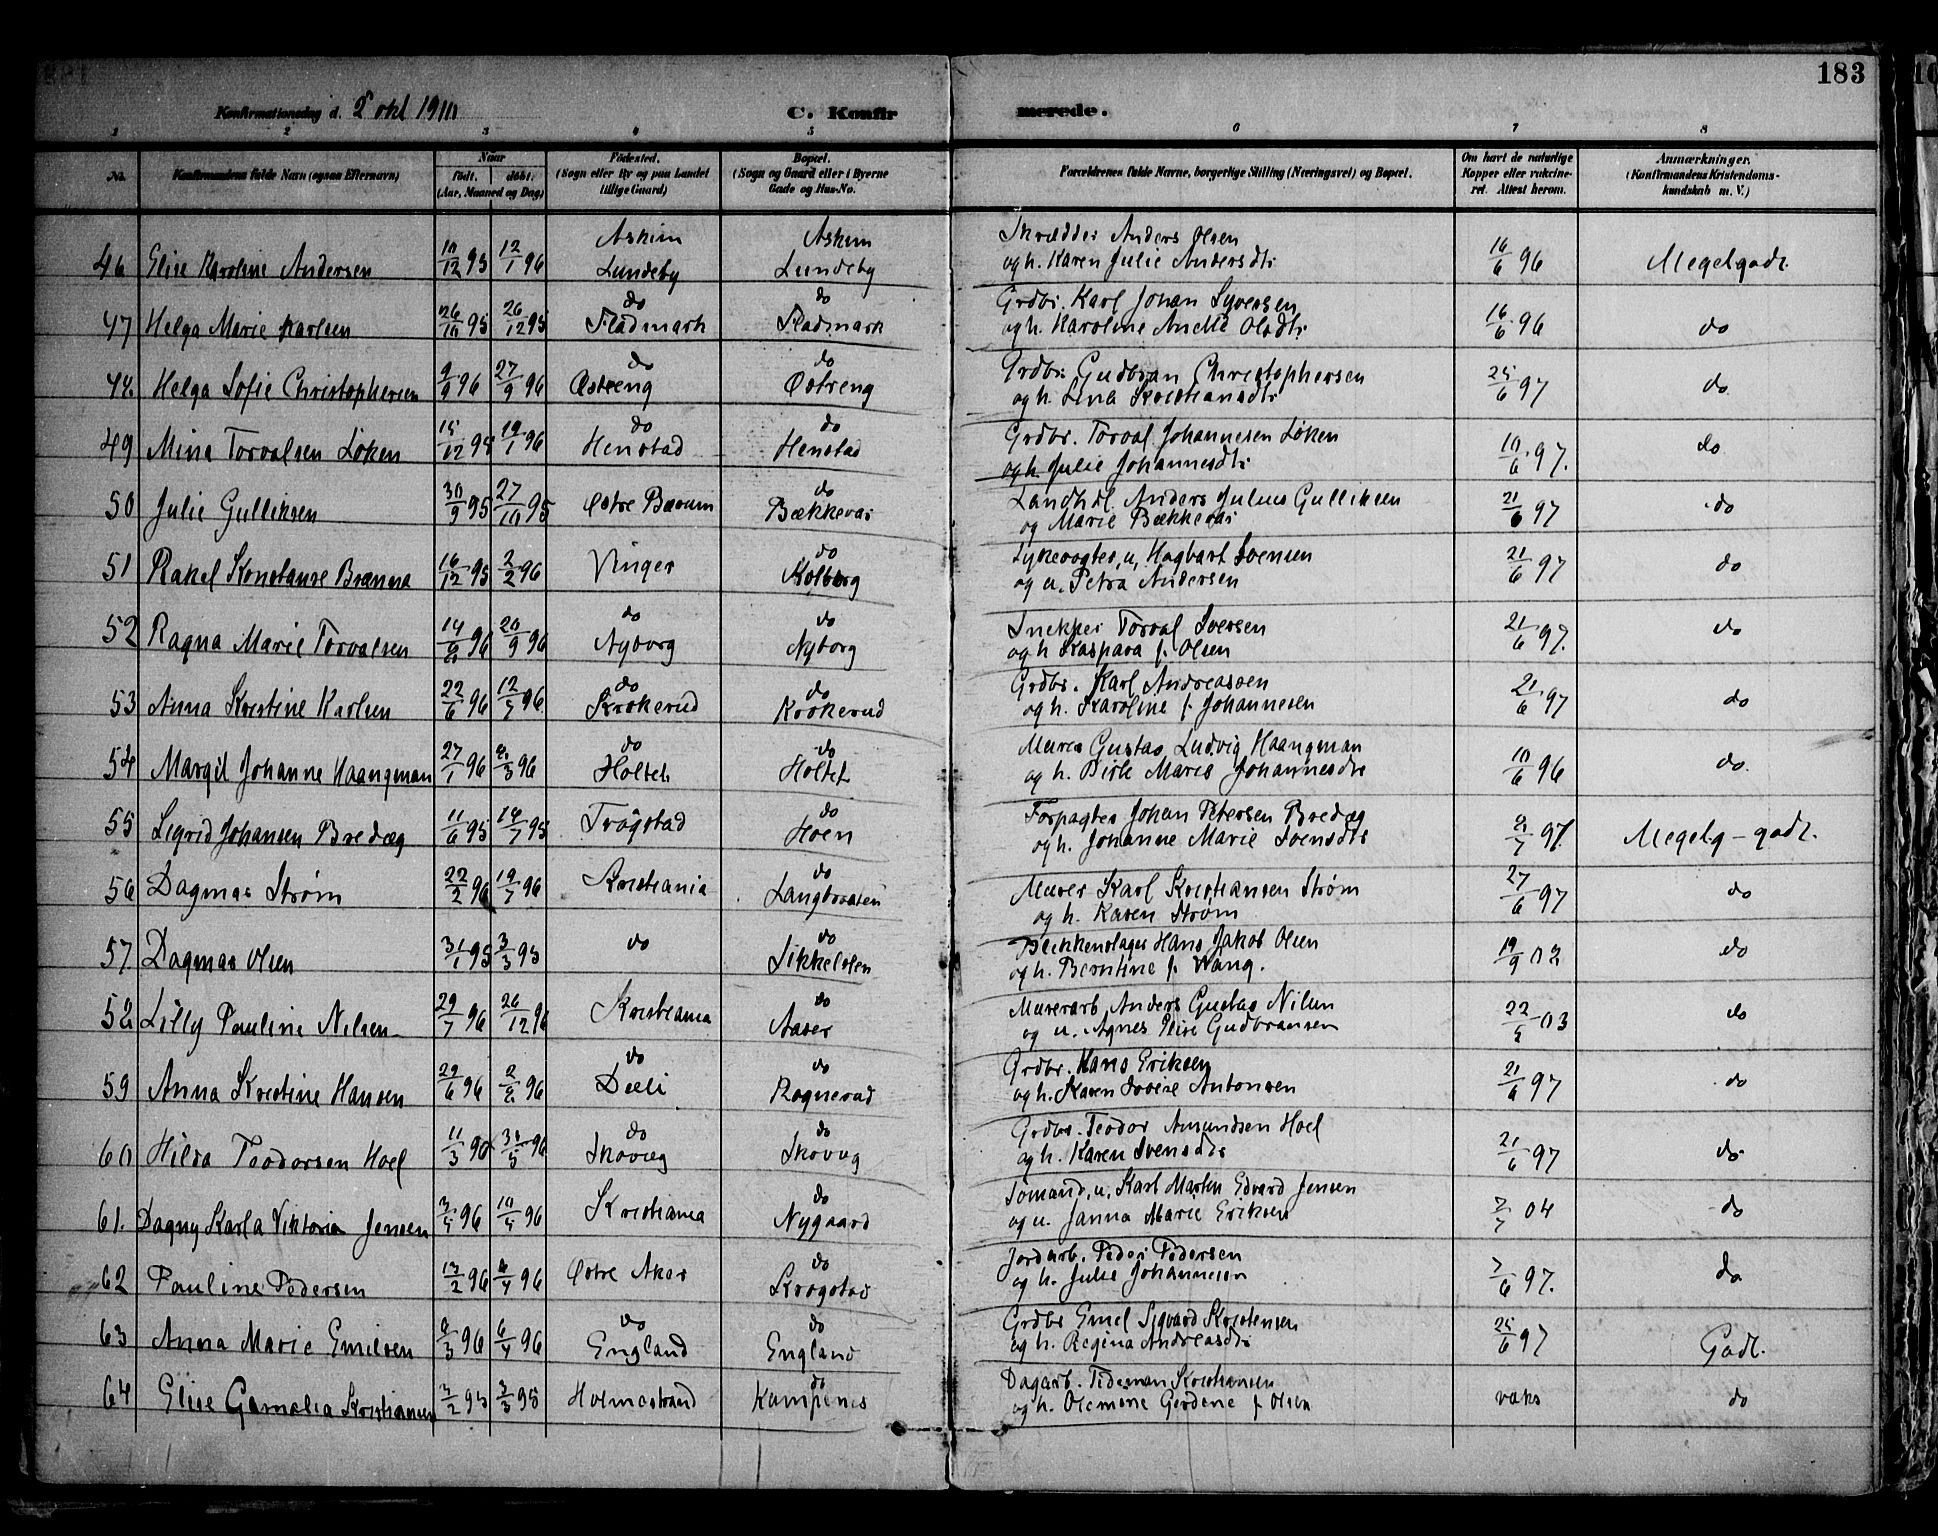 183
Konfirmationsdag d. 2 okt 1910
C. Konfirmerede.
1 2 3 4 5 6 7 8
No. Konfirmandens fulde Navn (ogsaa Efternavn) Naar født. døbt. (Aar, Maaned og Dag) Fødested. (Sogn eller By og paa Landet tillige Gaard) Bopæl. (Sogn og Gaard eller i Byerne Gade og Hus-No. Forældrenes fulde Navne, borgerlige Stilling (Næringsvei) og Bopæl. Om havt de naturlige Kopper eller vakcineret. Attest herom. Anmærkninger. (Konfirmandens Kristendomskundskab m. V.)
46 Elise Karoline Andersen 10/12 95 12/1 96 Askim Lundeby Askim Lundeby Skrædder Anders Olsen og h. Karen Julie Andersdtr 16/6 96 Megetgodt.
47 Helga Marie Karlsen 26/10 95 26/12 95 do Sladmark do Sladmark Grdbr. Karl Johan Syversen og h. Karoline Anette Olsdtr 16/6 96 do
48. Helga Sofie Christophersen 9/9 96 27/9 96 do Østreng do Østreng Grdbr Gudbran Christophersen og h. Lina Kristiansdtr 25/6 97 do
49 Mina Torvalsen Løken 15/12 95 19/1 96 do Henstad do Henstad Grdbr. Torval Johannesen Løken og h. Julie Johannesdtr 10/6 97. do
50 Julie Gulliksen 30/9 95 27/10 95 Østre Bærum do Bækkevar Landhdl. Anders Julius Gulliksen og Marie Bækkevar 21/6 97 do
51 Rakel Konstanse Branna 16/12 95 2/2 96 Vinger do Kolborg Sykevogter, u, Hagbart Svensen og u. Petra Andersen 21/6 97 do
52 Ragna Marie Torvalsen 14/8 96 20/9 96 do Nyborg do Nyborg Snekker Torval Iversen og h Kaspara f. Olsen 21/6 97. do
53 Anna Kristine Karlsen 22/6 96 12/7 96 do Krokerud do Krokerud Grdbr. Karl Andreassen og h. Karoline f. Johannesen 21/6 97 do
54 Margit Johanne Haangman 27/1 96 8/3 96 do Holtet do Holtet Murer Gustav Ludvig Haangman og h. Birte Marie Johannesdtr 10/6 96 do.
55 Sigrid Johansen Bredæg 11/6 95 14/7 95 Trøgstad do Hoen Forpagter Johan Petersen Bredæg og h. Johanne Marie Svensdtr 2/7 97. Megetg – godt.
56 Dagmar Strøm 22/2 96 19/7 96 Kristiania do Langbraaten Murer Karl Kristiansen Strøm og h. Karen Strøm 27/6 97 do
57. Dagmar Olsen 31/1 95 3/3 95 do do Sikkelslen Blikkenslager Hans Jakob Olsen og h. Berntine f. Wang. 19/9 02 do
58 Lilly Pauline Nilsen 29/7 96 26/12 96 Kristiania do Aaser Murerarb Anders Gustav Nilsen og u. Agnes Elise Gudbransen 22/5 03 do
59 Anna Kristine Hansen 29/6 96 2/8 96 do Dæli do Ragnerud Grdbr. Hans Eriksen og h. Karen Lovise Antonsen 21/6 97 do
60 Hilda Teodorsen Hoel 11/3 96 31/5 96 do Skovæg do Skovæg Grdbr. Teodor Amundsen Hoel og h. Karen Svensdtr 21/6 97 do
61. Dagny Karla Viktoria Jensen 3/4 96 10/4 96 Kristiania do Nygaard Sømand, u. Karl Martin Edvard Jensen og u. Janna Marie Eriksen 2/7 04 do
62 Pauline Pedersen 13/2 96 4/4 96 Østre Aker do Krogstad Jordarb. Peder Pedersen og h. Julie Johannesen 7/6 97. do
63 Anna Marie Emilsen 8/3 96 6/4 96 do England do England Grdbr Emil Sigvard Kristensen og h. Regina Andreasdtr 25/6 97 Godt.
64 Elise Gamelia Kristiansen 2/2 95 3/3 95 Holmestrand do Kampenes Dagarb. Tideman Kristiansen og h. Olemine Gerdine f Olsen vaks do